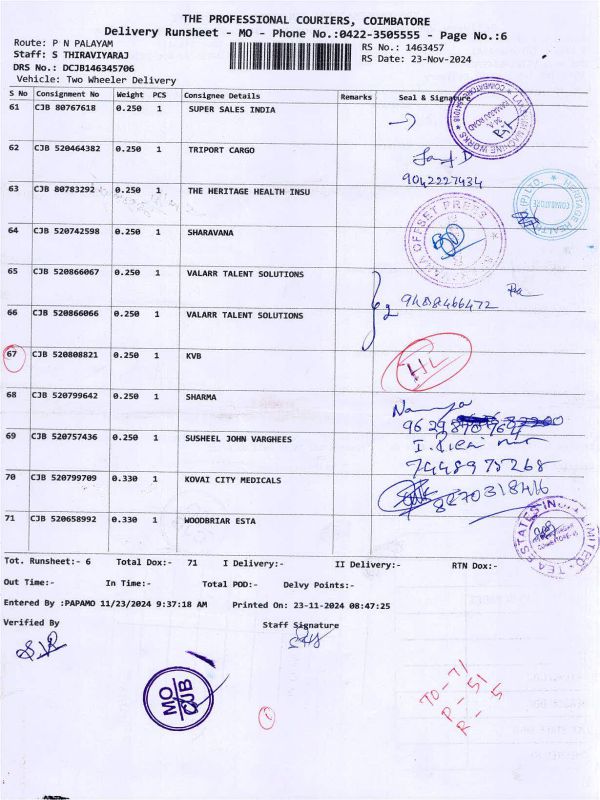 THE PROFESSIONAL COURIERS, COIMBATORE
Delivery Runsheet - MO - Phone No.:0422-3505555 - Page No.:6
Route: P N PALAYAM
Staff: S THIRAVIYARAJ
DRS No.: DCJB146345706
Vehicle: Two Wheeler Delivery
RS No.: 1463457
RS Date: 23-Nov-2024
S No Consignment No Weight PCS Consignee Details Remarks Seal & Signature
61 CJB 80767618 0.250 1 SUPER SALES INDIA
62 CJB 520464382 0.250 1 TRIPORT CARGO
9042227434
63 CJB 80783292 0.250 1 THE HERITAGE HEALTH INSU
64 CJB 520742598 0.250 1 SHARAVANA
OFFSET PRESS
65 CJB 520866067 0.250 1 VALARR TALENT SOLUTIONS
9488466472
66 CJB 520866066 0.250 1 VALARR TALENT SOLUTIONS
67 CJB 520808821 0.250 1 KVB
HL
68 CJB 520799642 0.250 1 SHARMA
69 CJB 520757436 0.250 1 SUSHEEL JOHN VARGHEES
7448975268
70 CJB 520799709 0.330 1 KOVAI CITY MEDICALS
8870318416
71 CJB 520658992 0.330 1 WOODBRIAR ESTA
Tot. Runsheet:- 6 Total Dox:- 71 I Delivery:- II Delivery:- RTN Dox:-
Out Time:- In Time:- Total POD:- Delvy Points:-
Entered By :PAPAMO 11/23/2024 9:37:18 AM Printed On: 23-11-2024 08:47:25
Verified By Staff Signature
MO
CJB
1
TO - 71
P - 51
R - 5